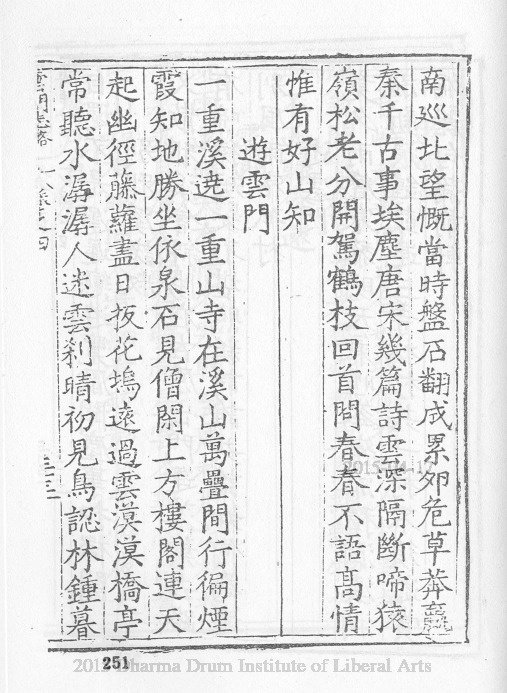 南巡北望慨當時盤石翻成累夘危草莽嬴
秦千古事埃塵唐宋幾篇詩雲深隔斷啼猿
嶺松老分開駕鶴枝回首問春春不語髙情
惟有好山知
遊雲門
一重溪遶一重山寺在溪山萬疊間行徧煙
霞知地勝坐依泉石見僧閑上方樓閣連天
起幽徑藤蘿盡日扳花塢逺過雲漠漠橋亭
常聽水潺潺人迷雲刹晴初見鳥認林鍾暮
雲門志略 卷之四
三三
2015-04-17
251
Dharma Drum Institute of Liberal Arts